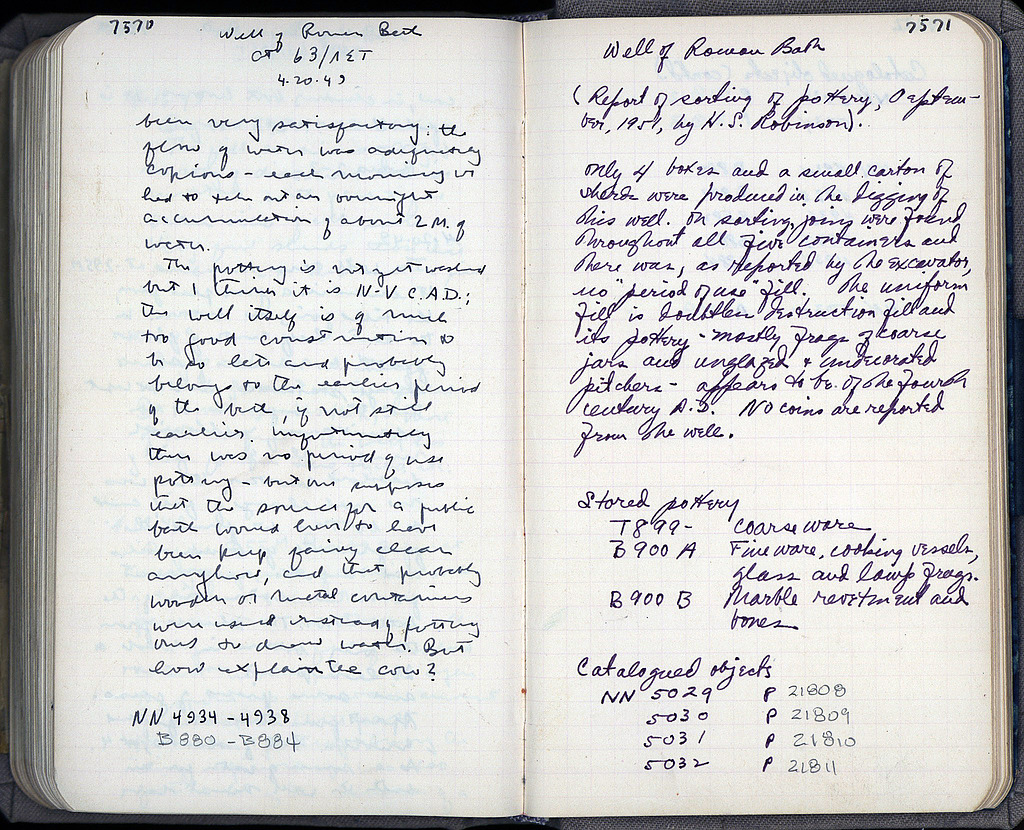 7570
Well of Roman Bath
63/ΛΕΤ
4.20.49
been very satisfactory: the
flow of water was
copious - each morning we
had to take out an overnight
accumulation of about 2 M. of
water.
The pottery is not yet washed
but I think it is IV-V C.A.D.;
the well itself is of much
too good construction to
be so late and probably
belongs to the earlier period
of the bath, if not still
earlier. Unfortunately
there was no period of use
pottery - but one supposes
that the source for a public
bath would have to have
been kept fairly clean
anyhow, and that probably
wooden or metal containers
were used instead of pottery
ones to draw water. But
how explain the cow?
NN 4934-4938
B 880 - B 884
7571
Well of Roman Bath
(Report of sorting of pottery, Septem-
ber, 1951, by H. S. Robinson).
Only 4 boxes and a small carton of
sherds were produced in the digging of
this well. On sorting, joins were found
throughout all five containers and
there was, as reported by the excavator,
no "period of use" fill. The uniform
fill is doubtless destruction fill and
its pottery - mostly frags of coarse
jars and unglazed & undecorated
pitchers - appears to be of the fourth
century A.D. No coins are reported
from the well.
Stored pottery
T 899 - Coarse ware
B 900 A Fine ware, cooking vessels,
glass and lamp frags.
B 900 B Marble revetment and
bones
Catalogued objects
NN 5029 P 21808
5030 P 21809
5031 P 21810
5032 P 21811